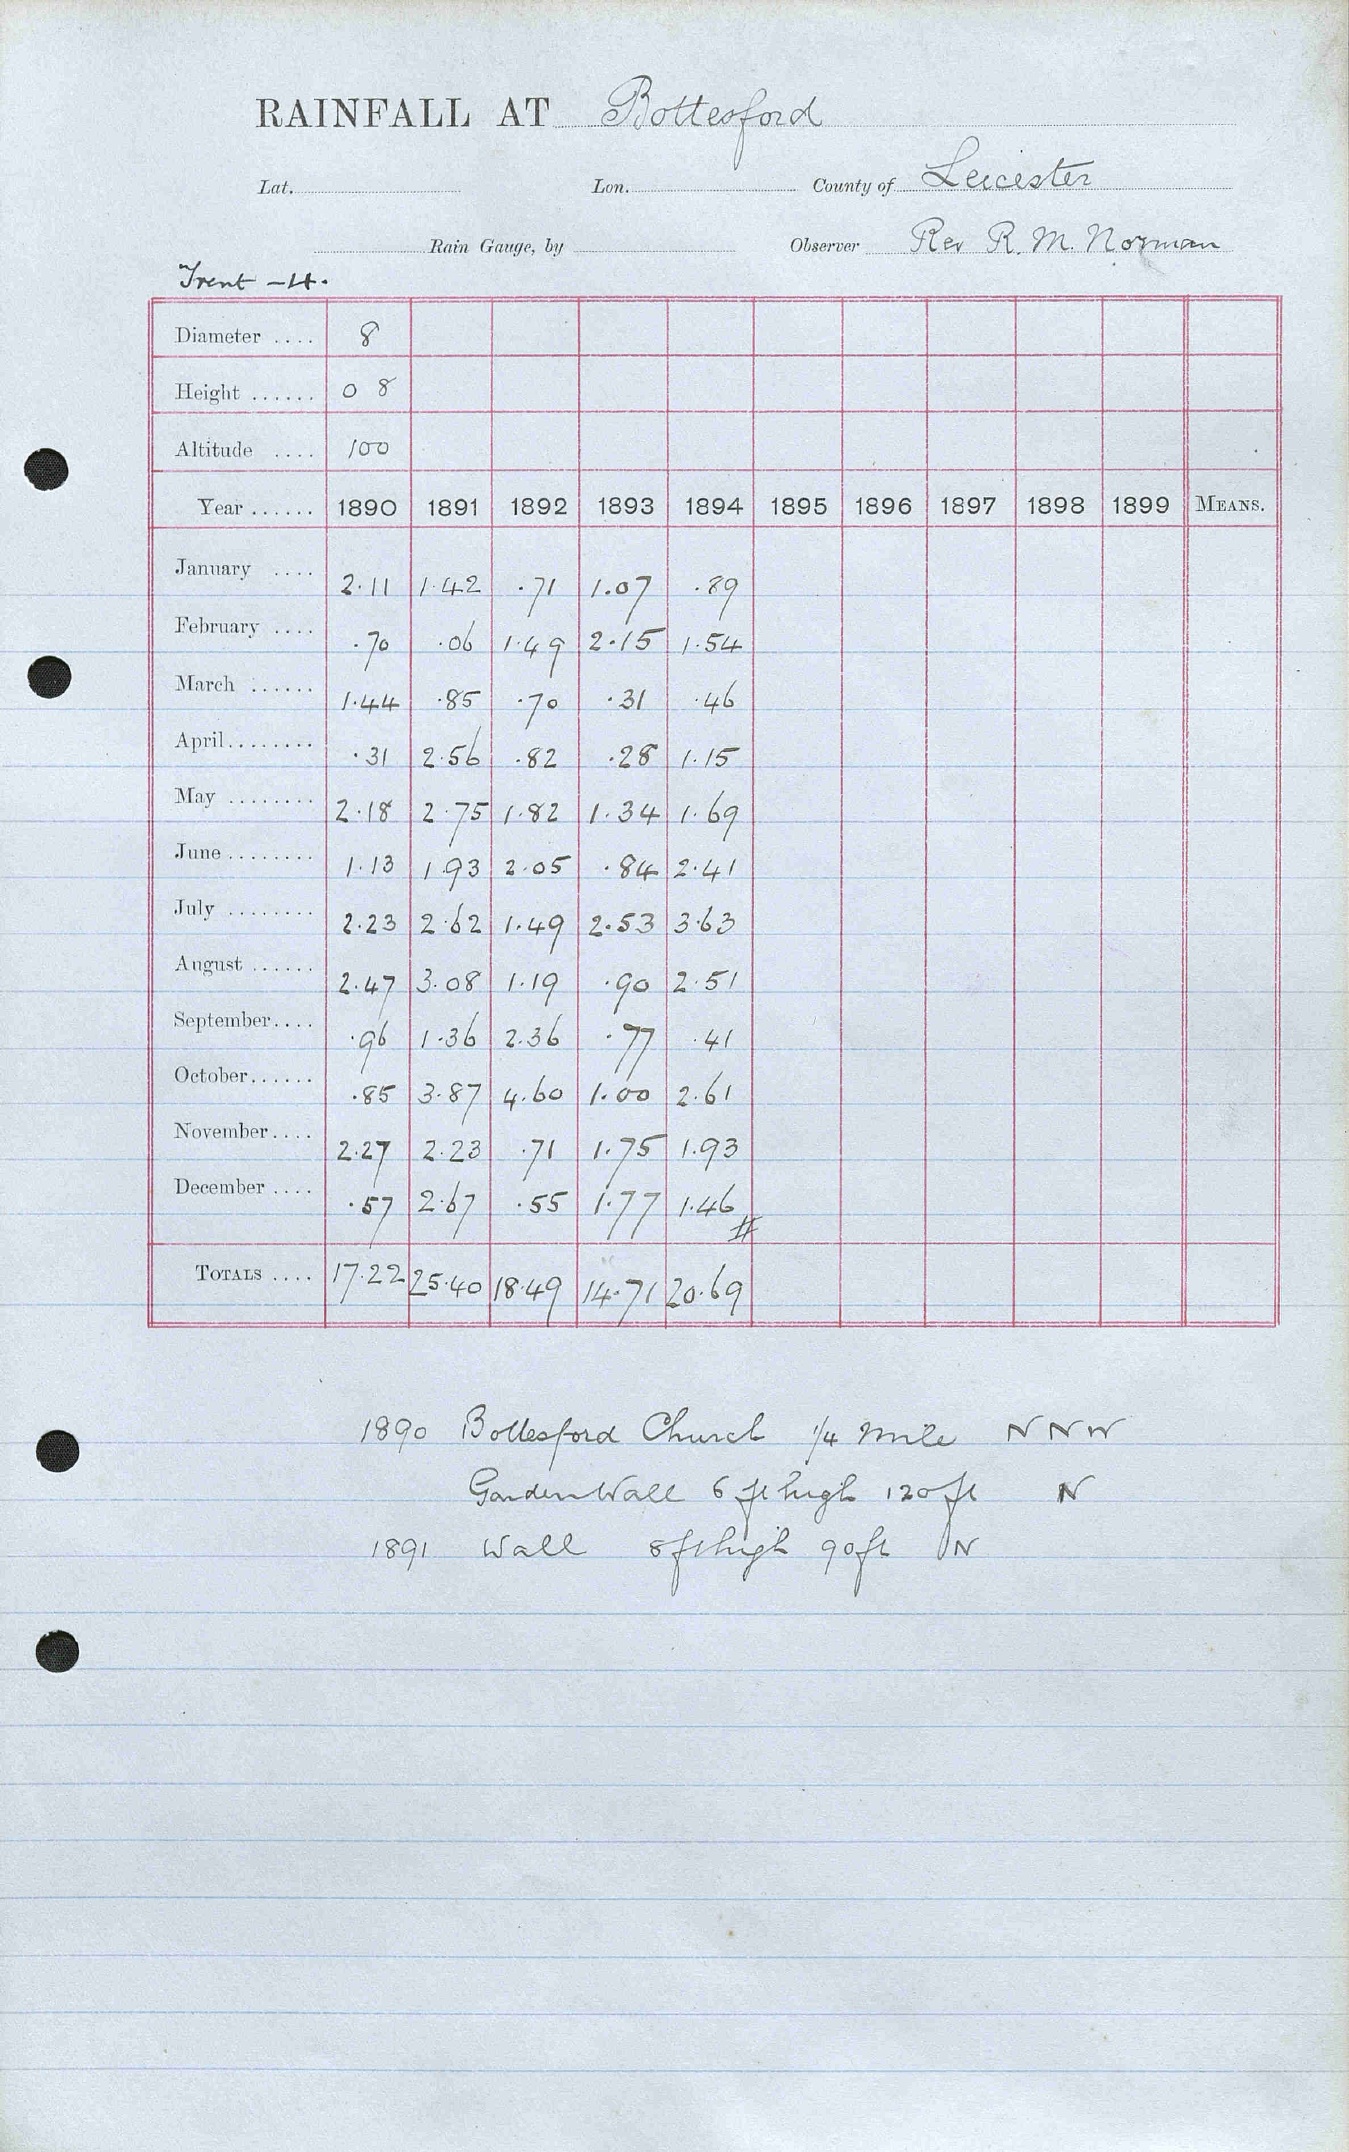 RAINFALL AT Bottesford
Lat. Lon. County of Leicester
Rain Gauge, by Observer Rev R. M. Norman
Trent - 4.
Diameter .... 8
Height ...... 0 8
Altitude .... 100
Year ...... 1890 1891 1892 1893 1894 1895 1896 1897 1898 1899 MEANS.
January .... 2.11 1.42 .71 1.07 .89
February .... .70 .06 1.49 2.15 1.54
March ...... 1.44 .85 .70 .31 .46
April........ .31 2.56 .82 .28 1.15
May ........ 2.18 2.75 1.82 1.34 1.69
June ........ 1.13 1.93 2.05 .84 2.41
July ........ 2.23 2.62 1.49 2.53 3.63
August ...... 2.47 3.08 1.19 .90 2.51
September.... .96 1.36 2.36 .77 .41
October...... .85 3.87 4.60 1.00 2.61
November.... 2.27 2.23 .71 1.75 1.93
December .... .57 2.67 .55 1.77 1.46
TOTALS .... 17.22 25.40 18.49 14.71 20.69
1890 Bottesford Church 1/4 mile N N W
Garden Wall 6 ft high 120 ft N
1891 Wall 8 ft high 90 ft N